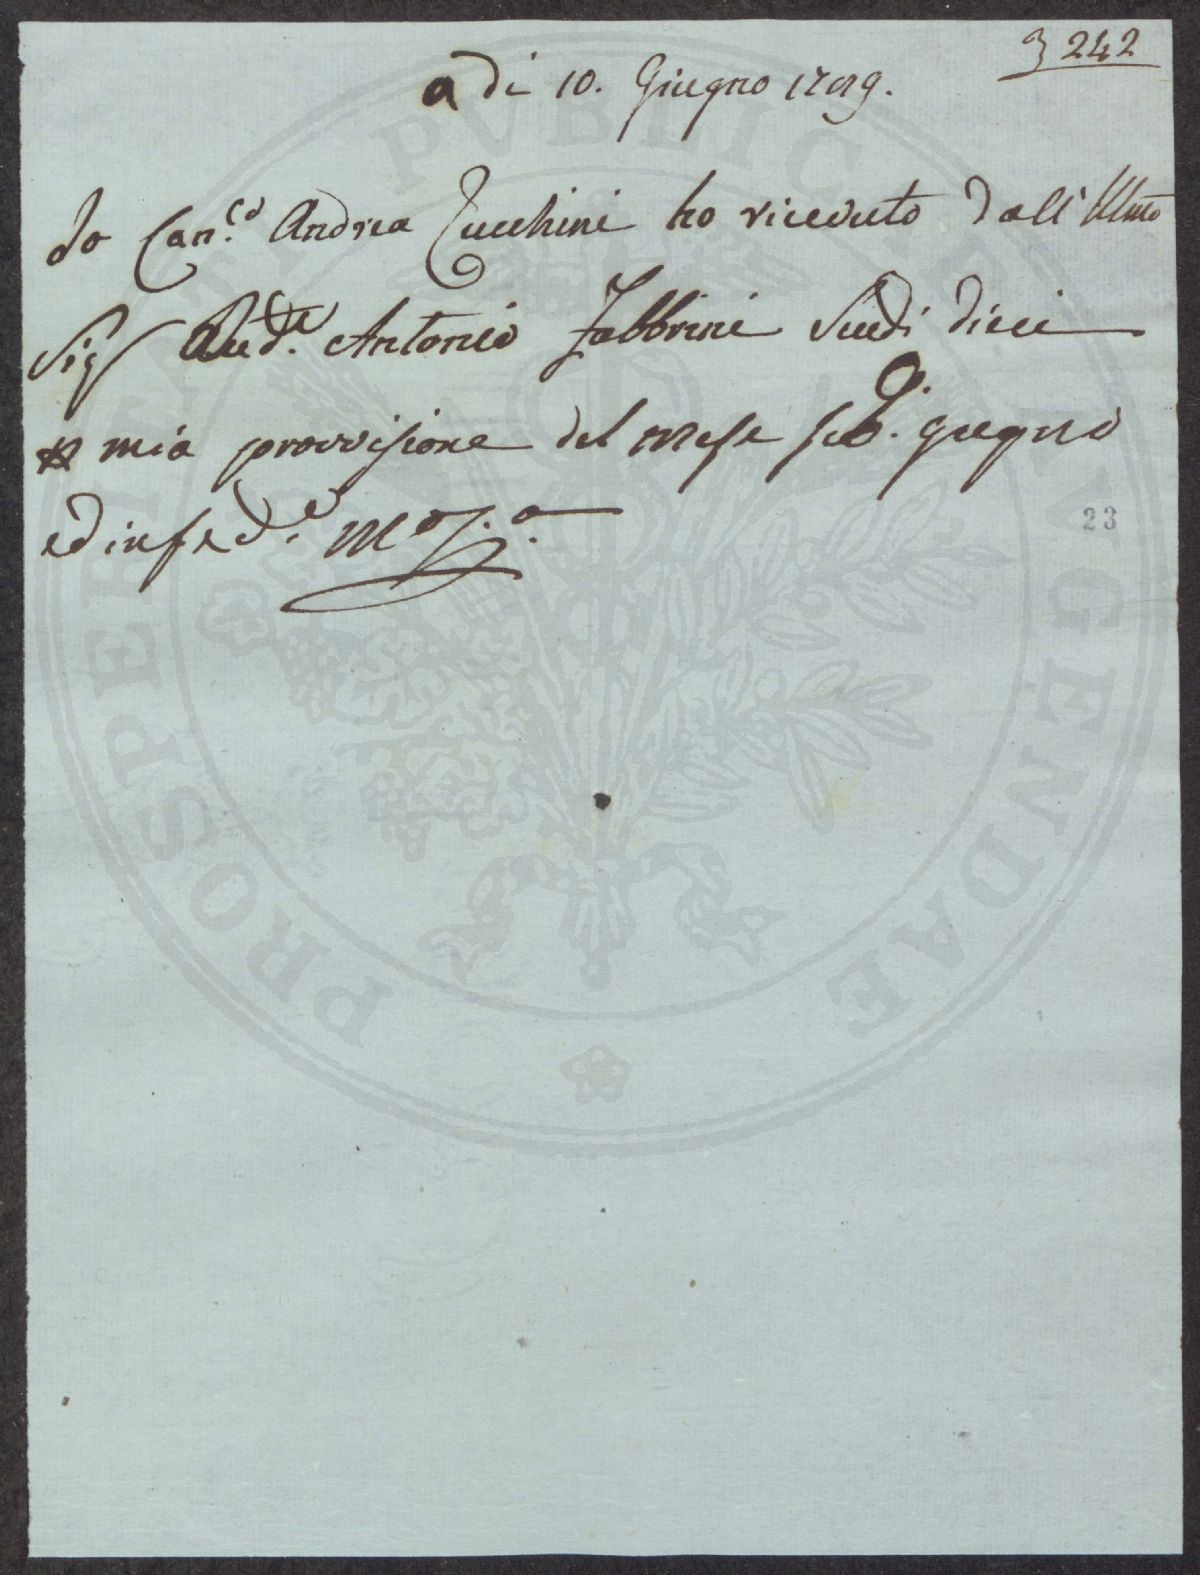 3 242
a di 10. Giugno 1789.
Io Can.co Andrea Zucchini ho ricevuto dall' Illmo
Sig Aud.te Antonio Fabbrini Scudi dieci
mia provvisione del mese di Giugno
ed in fede M.o p.a
23
PROSPERITATI PUBLICAE AUGENDAE